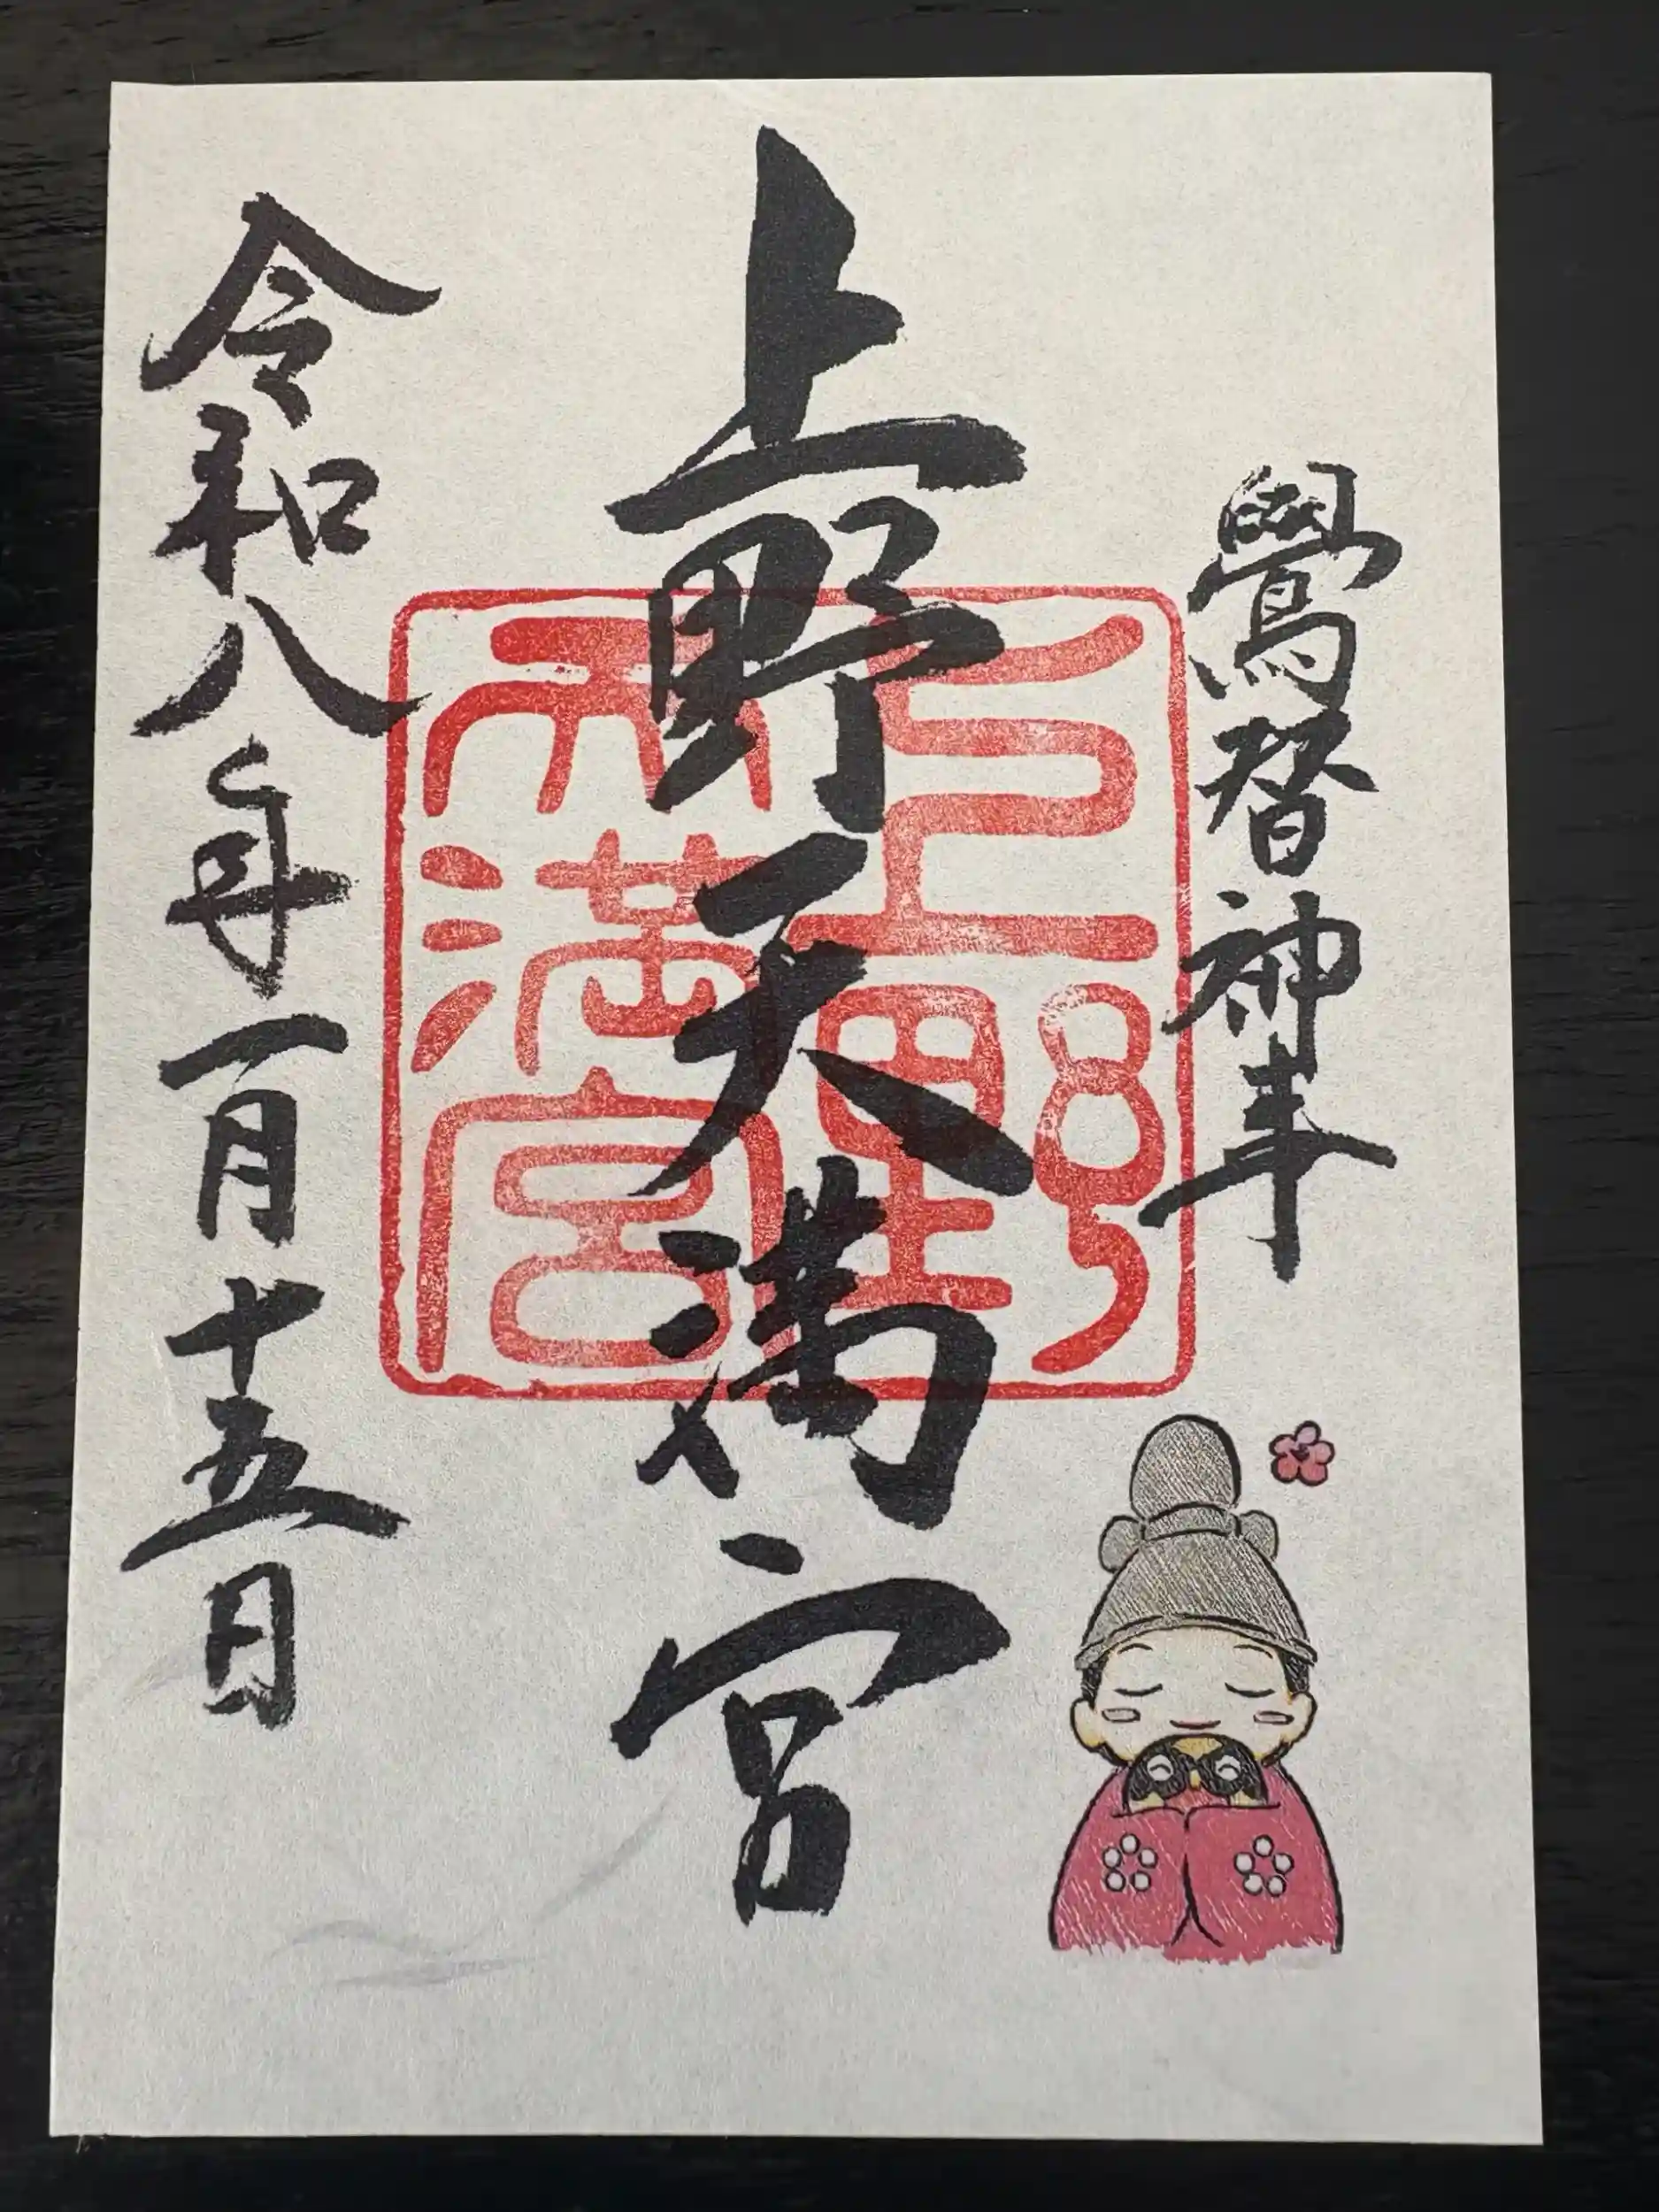 鷽替神事
上野天満宮
令和八年一月十五日
上野
天満宮